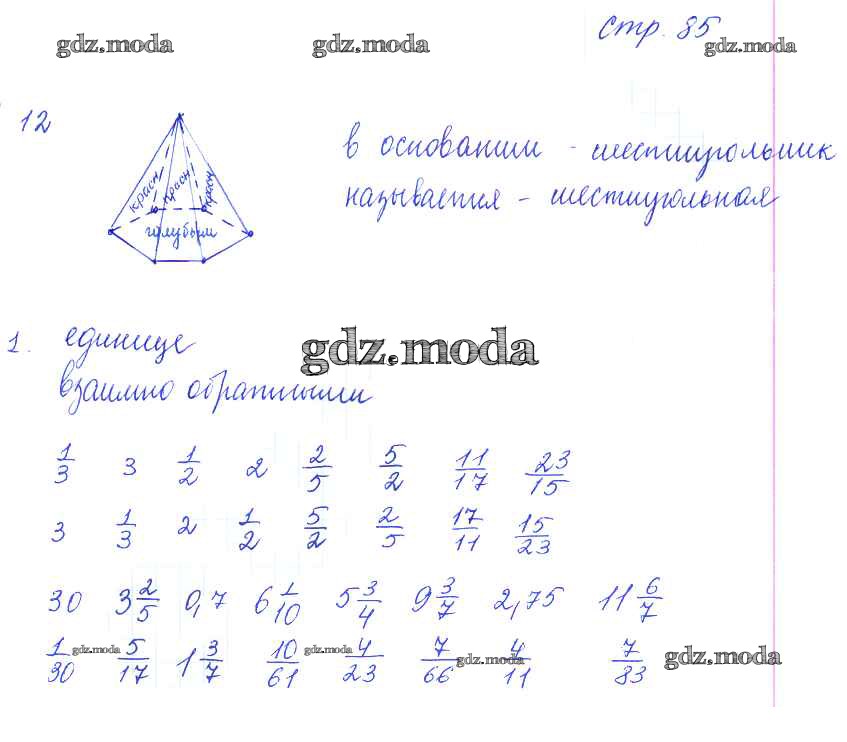 стр. 85
gdz.moda gdz.moda gdz.moda
12
красн красн красн
голубым
в основании - шестиугольник
называется - шестиугольная
1. единице
gdz.moda
взаимно обратными
1/3 3 1/2 2 2/5 5/2 11/17 23/15
3 1/3 2 1/2 5/2 2/5 17/11 15/23
30 3 2/5 0,7 6 1/10 5 3/4 9 3/7 2,75 11 6/7
1/30 5/17 1 3/7 10/61 4/23 7/66 4/11 7/83
gdz.moda gdz.moda gdz.moda gdz.moda